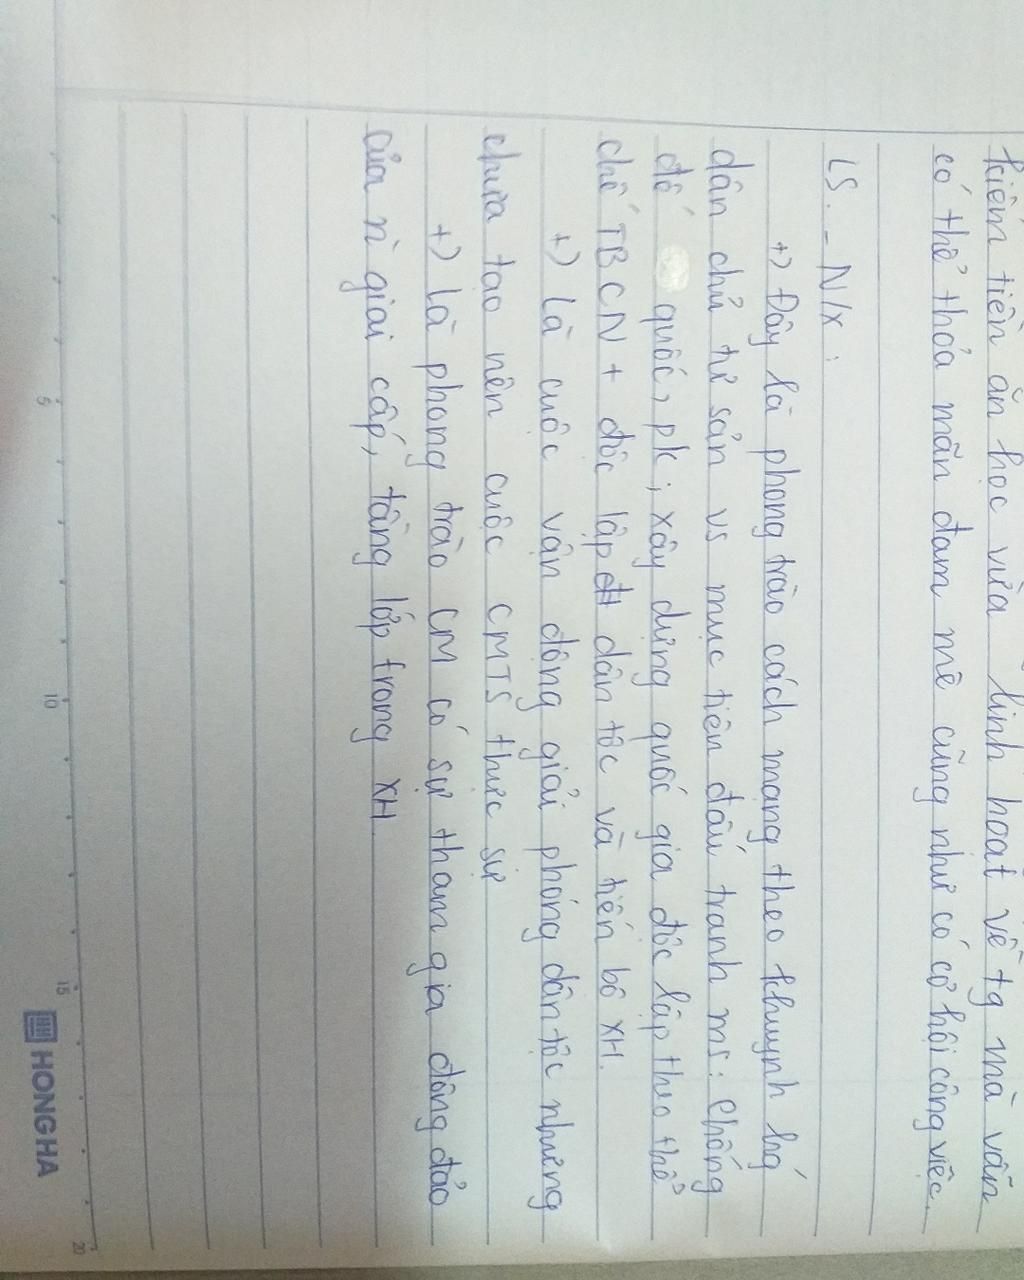 kiếm tiền ăn học vừa linh hoạt về tg mà vẫn
có thể thỏa mãn đam mê cũng như có cơ hội công việc.
LS. - N/x:
+) Đây là phong trào cách mạng theo khuynh hg'
dân chủ tư sản vs mục tiên đấu tranh ms: chống
đế quốc, pk; xây dựng quốc gia độc lập theo thể
chế TBCN + độc lập dân tộc và tiến bộ XH.
+) Là cuộc vận động giải phóng dân tộc nhưng
chưa tạo nên cuộc CMTS thực sự
+) là phong trào CM có sự tham gia đông đảo
của n` giai cấp, tầng lớp trong XH.
5
10
15
20
HONG HA